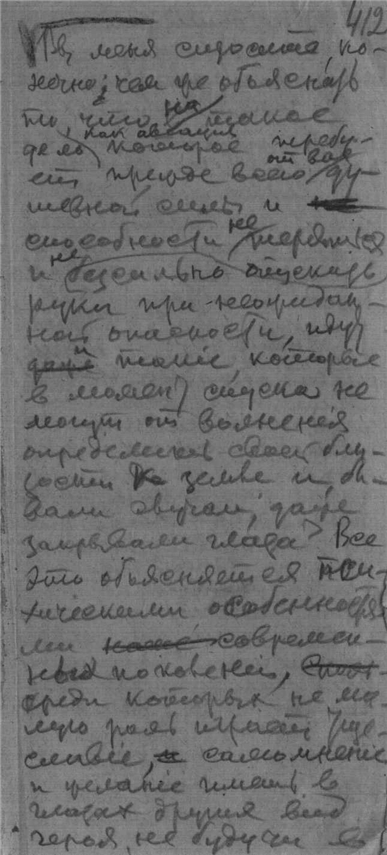 412
Вы меня спросите, ко-
нечно; чем же объяснить
то, что на такое
дело, как авиация
которое требу-
ет прежде всего от вас ду-
шевной силы и
способности не теряться
и не безсильно опускать
руки при неожидан-
ной опасности, идут
даже такие, которые
в момент спуска не
могут от волнения
определить своей бли-
зости к земле и, бы-
вали случаи, даже
закрывали глаза? Все
это объясняется пси-
хическими особенностя-
ми современ-
ных поколений,
среди которых не ма-
лую роль играет тще-
славие, самомнение
и желание иметь в
глазах других вид
героя, не будучи в